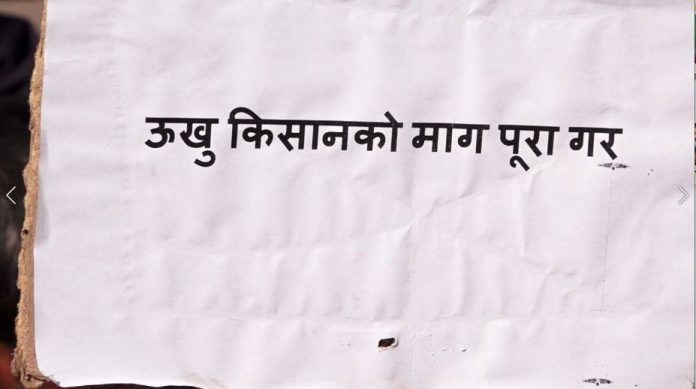 ऊखु किसानको माग पूरा गर